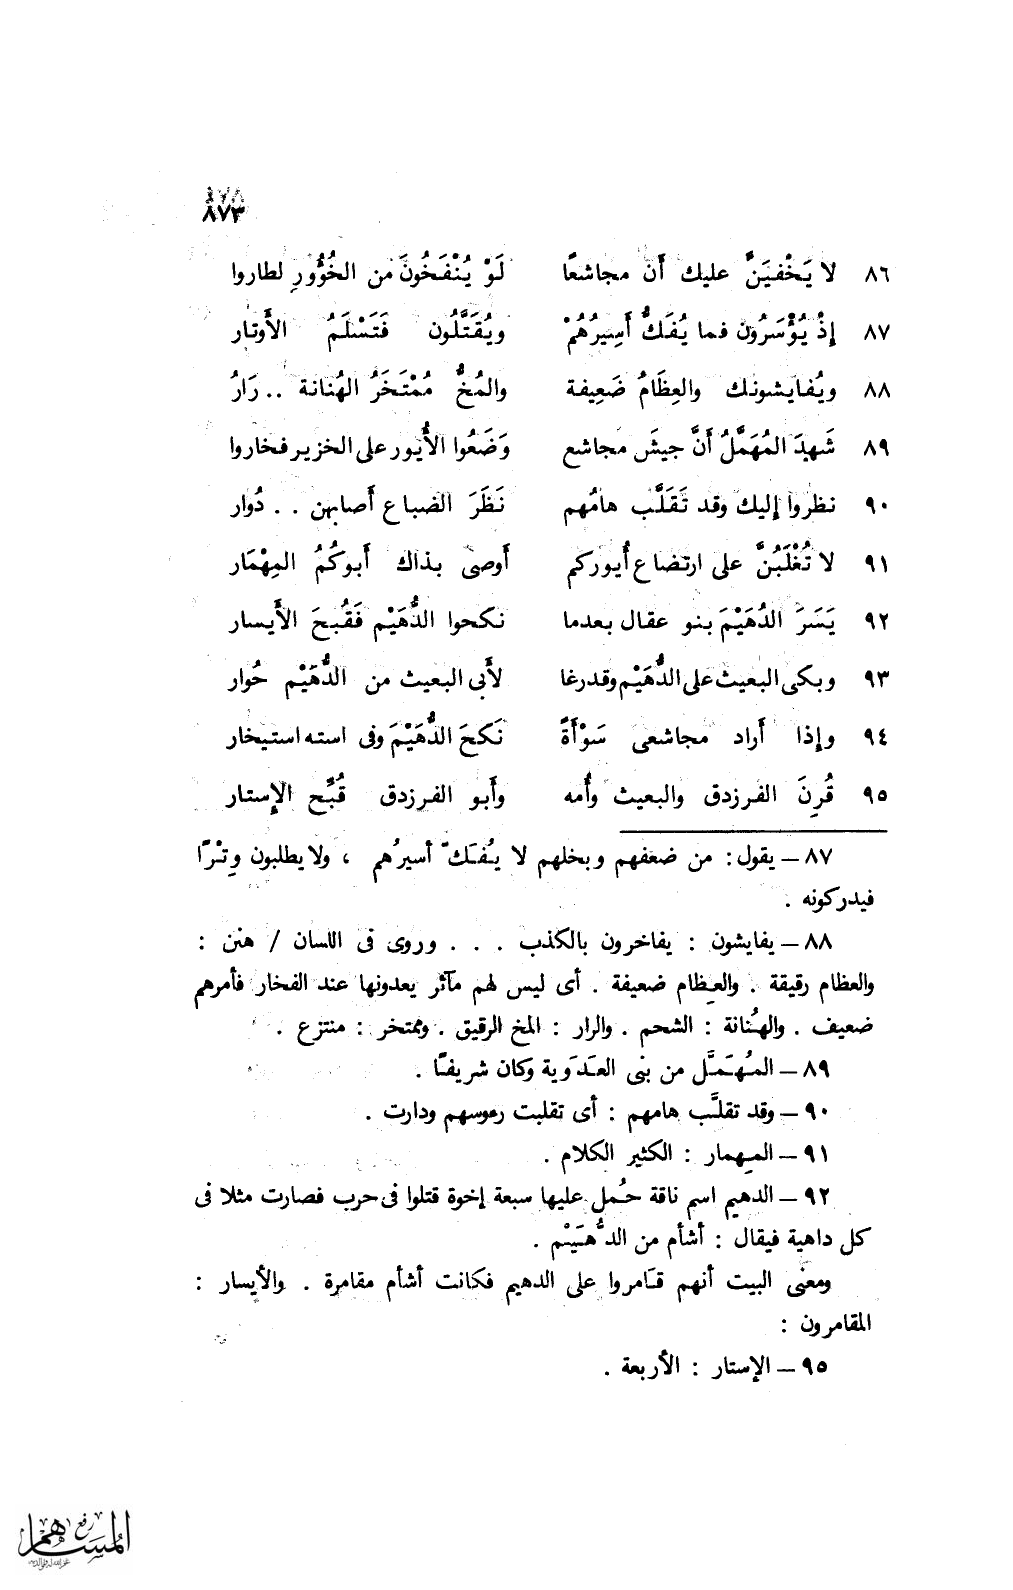 ٨٧٣
٨٦ لا يَخْفيَنَّ عليك أَن مجاشعًا لَوْ يُنْفَخُونَ من الخُؤُورِ لطاروا
٨٧ إِذْ يُؤْسَرُون فما يُفَكُّ أَسِيرُهُمْ ويُقَتَّلُون فَتَسْلَمُ الأَوتار
٨٨ ويُفايشونك والعِظَامُ ضَعِيفة والمُخُّ مُمْتَخَرُ الهُنانة .. رَارُ
٨٩ شَهِدَ المُهَمَّلُ أَنَّ جيشَ مجاشع وَضَعُوا الأُيور على الخزير فخاروا
٩٠ نظروا إليك وقد تَقَلَّب هامُهم نَظَرَ الضباع أَصابهن .. دُوار
٩١ لا تُغْلَبُنَّ على ارتضاع أُيوركم أَوصى بذاك أَبوكُمُ المِهْمَار
٩٢ يَسَرَ الدُهَيْمَ بنو عقال بعدما نكحوا الدُّهَيْم فَقُبحَ الأَيسار
٩٣ وبكى البعيث على الدُّهَيْم وقدرغا لأَبى البعيث من الدُّهَيْم حُوار
٩٤ وإذا أَراد مجاشعى سَوْأَةً نَكَحَ الدُّهَيْمَ وفى استه استيخار
٩٥ قُرِنَ الفرزدق والبعيث وأُمه وأَبو الفرزدق قُبِّح الإِستار
٨٧ – يقول: من ضعفهم وبخلهم لا يُفَكّ أسيرُهم ، ولا يطلبون وِتْرًا
فيدركونه .
٨٨ – يفايشون : يفاخرون بالكذب . . . وروى فى اللسان / هنن :
والعظام رقيقة . والعِظام ضعيفة . أى ليس لهم مآثر يعدونها عند الفخار فأمرهم
ضعيف . والهُنانة : الشحم . والرار : المخ الرقيق . وممتخر : منتزع .
٨٩ – المُهَمَّل من بنى العَدَوية وكان شريفًا .
٩٠ – وقد تقلَّب هامهم : أى تقلبت رءوسهم ودارت .
٩١ – المِهمار : الكثير الكلام .
٩٢ – الدهيم اسم ناقة حُمل عليها سبعة إخوة قتلوا فى حرب فصارت مثلا فى
كل داهية فيقال : أشأم من الدُّهَيْم .
ومعنى البيت أنهم قَامروا على الدهيم فكانت أشأم مقامرة . والأيسار :
المقامرون :
٩٥ – الإستار : الأربعة .